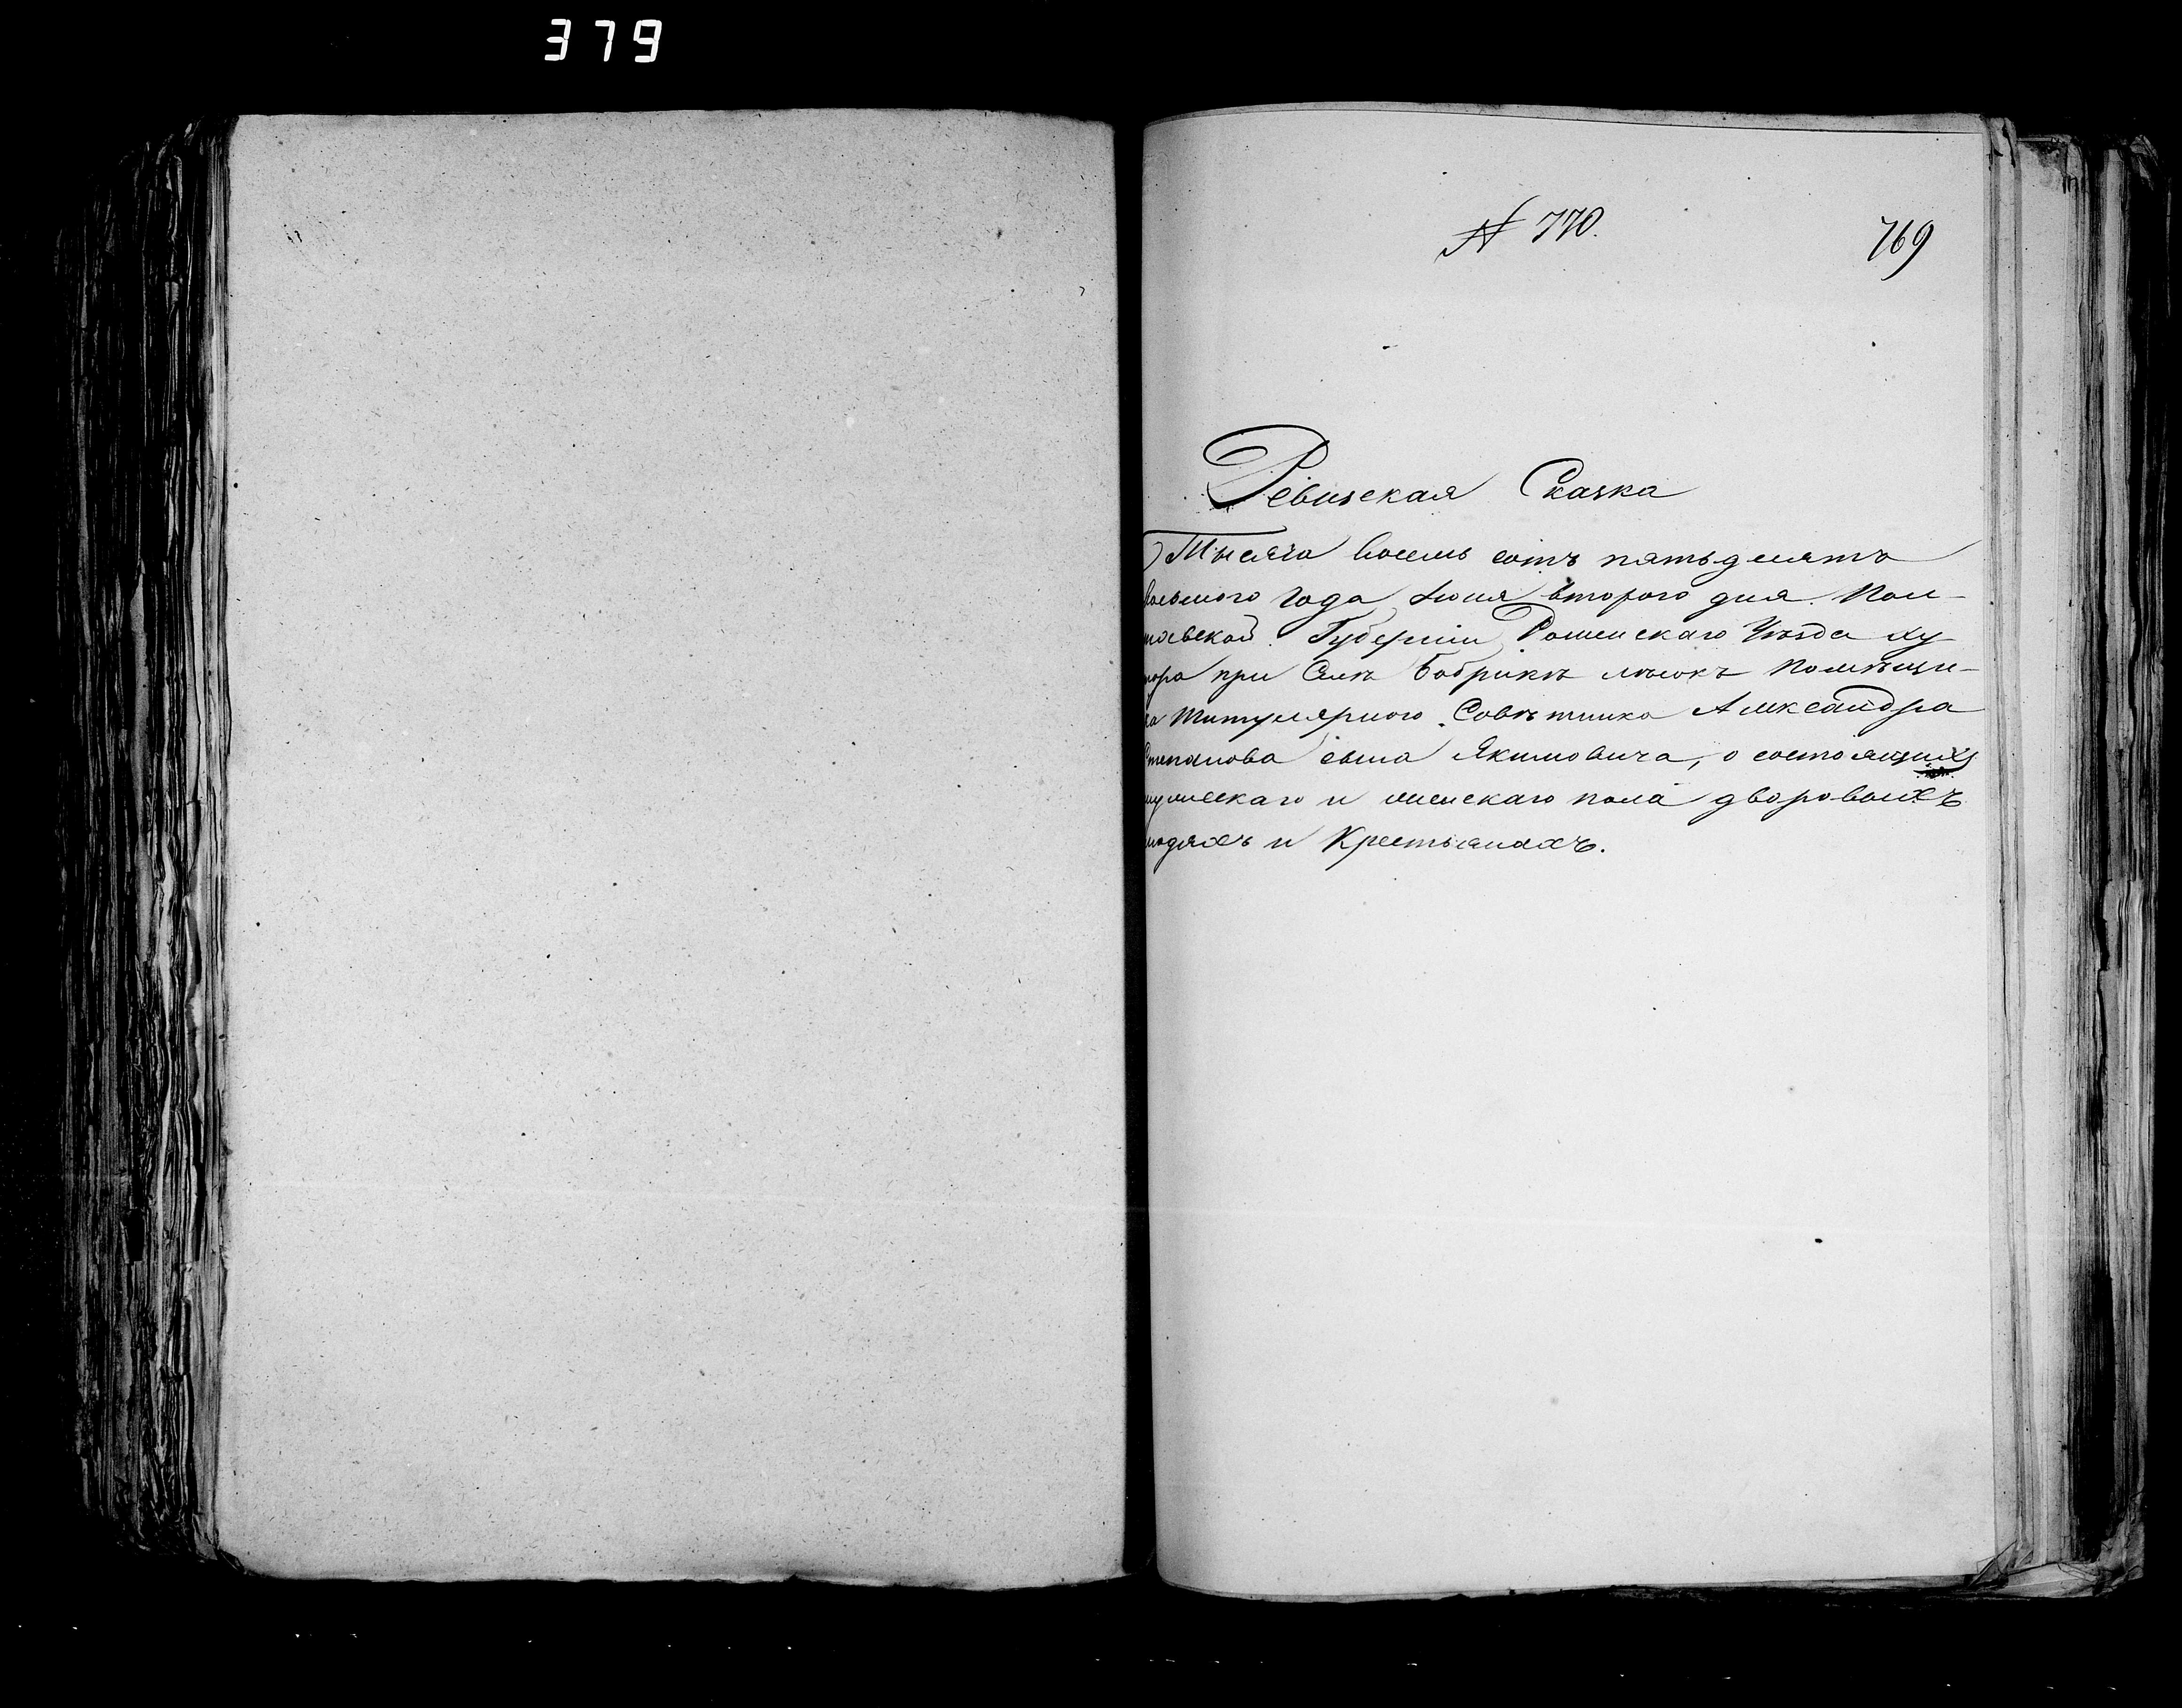 379
№ 770.
769
Ревизская Сказка
Тысяча восемь сотъ пятьдесятъ
восьмого года Июня второго дня. Пол-
тавской Губерніи Роменскаго Уѣзда ху-
тора при Селѣ Бобрикѣ помѣщи-
ка Титулярного Совѣтника Александра
Степанова сына Якимовича, о состоящихъ
мужескаго и женскаго пола дворовыхъ
людяхъ и Крестьянахъ.